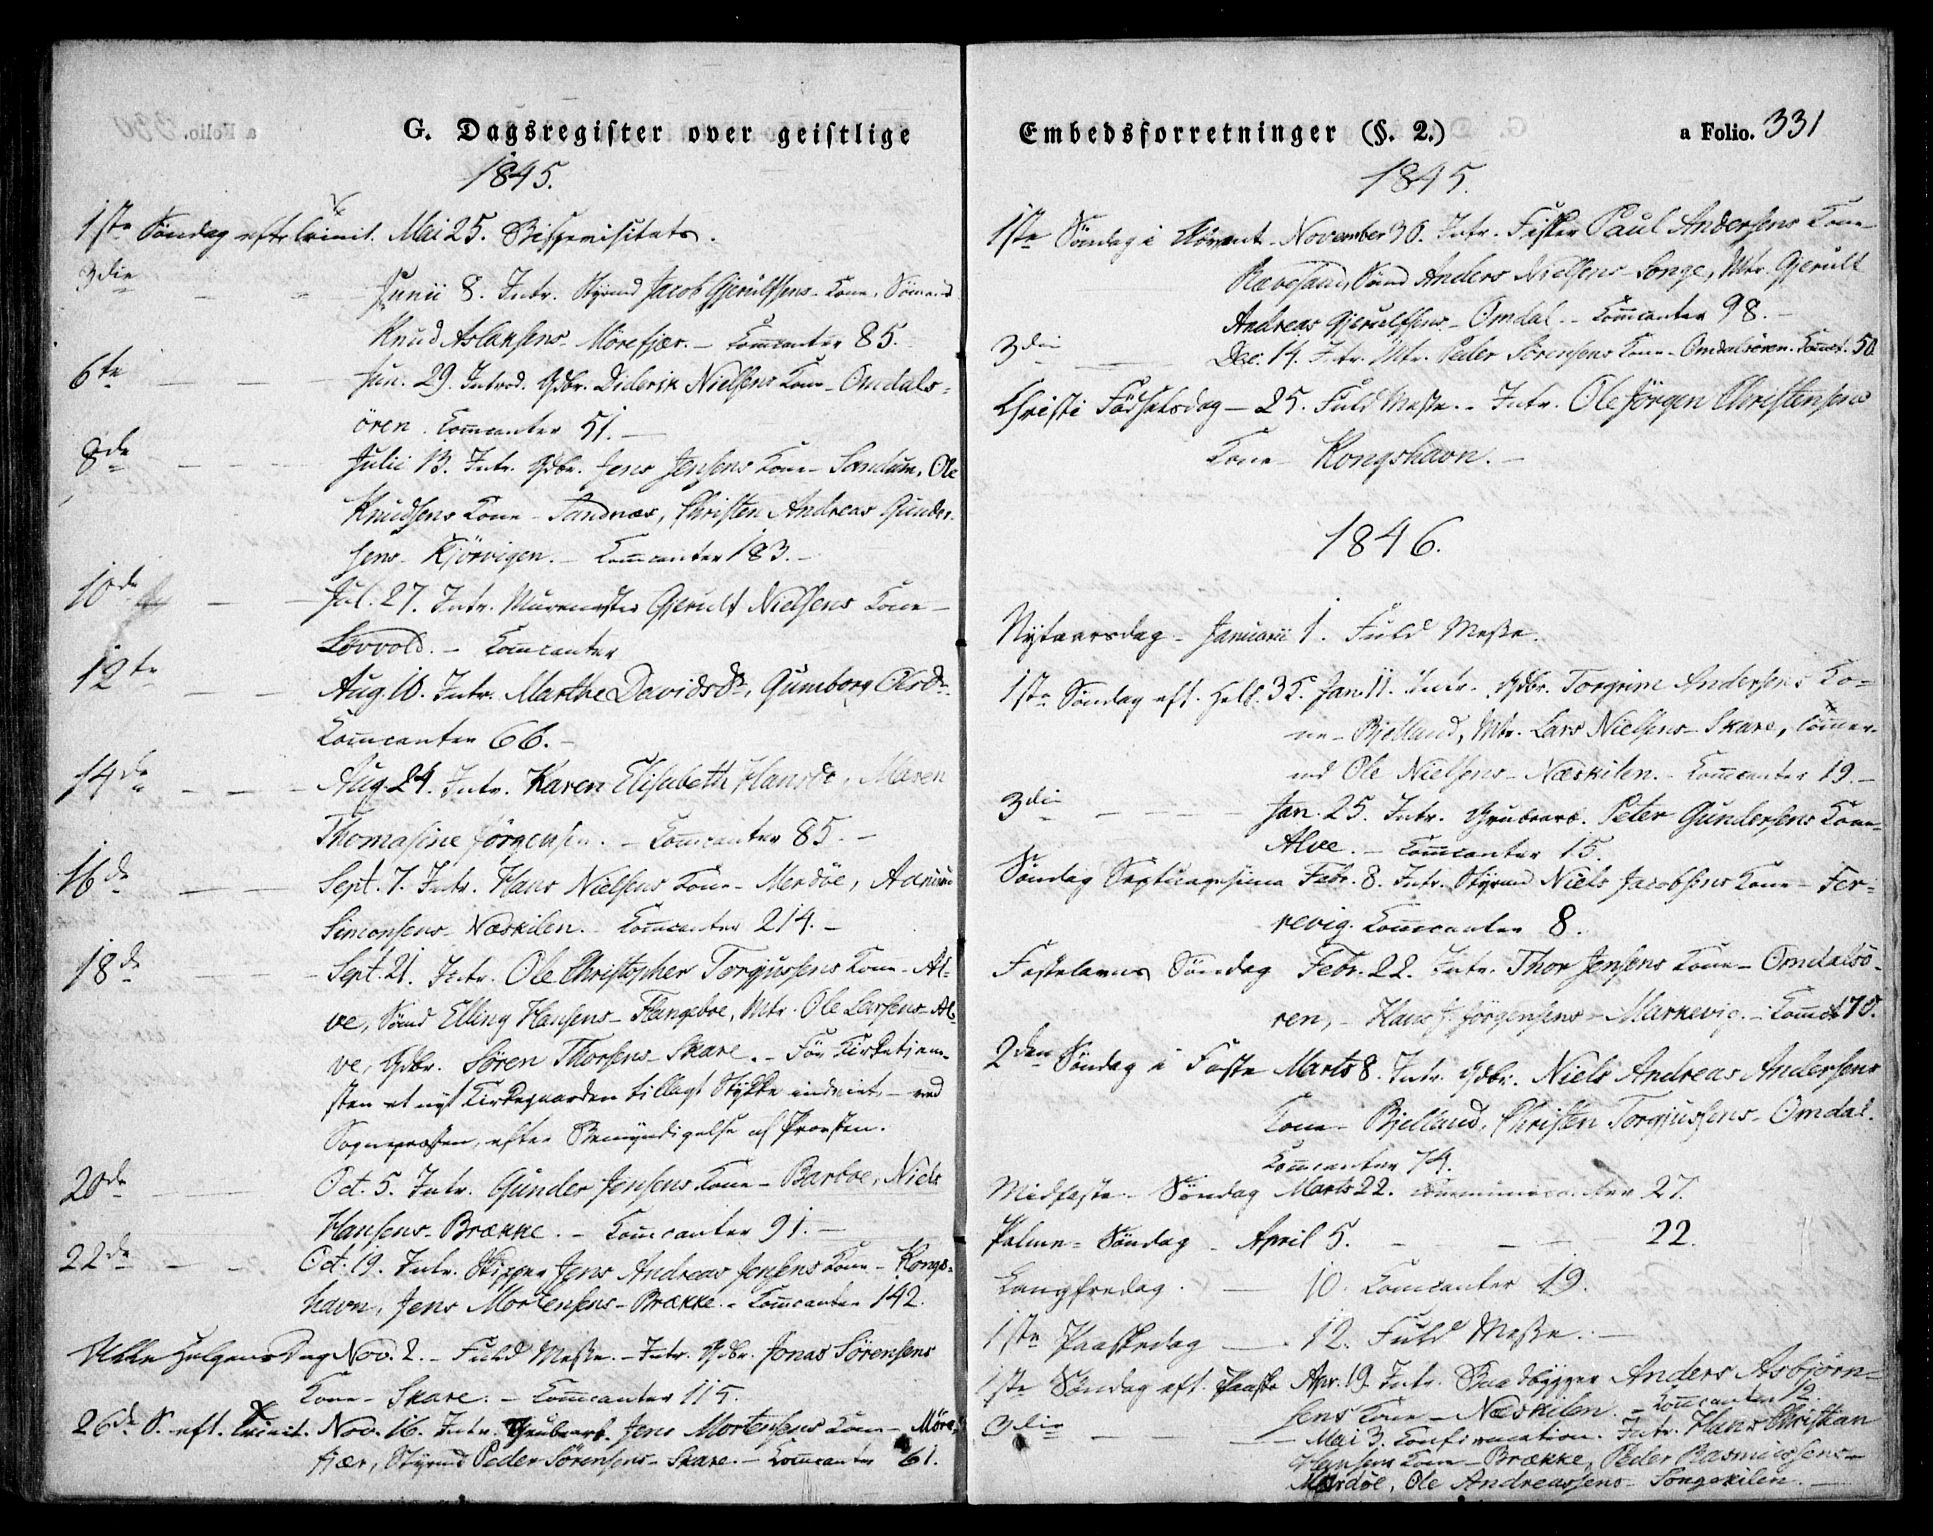 G. Dagsregister over geistlige
1845.
1ste Søndag efter Trinit. Mai 25. Bispevisitats.
3die - - - Junii 8. Intr. Styrmd Jacob Gjerulfsens Kone, Sømd
Knud Aslaksens - Mörefjær. - Komcanter 85.
6te - - - Jun. 29. Introd. Gdbr. Diderik Nielsens Kone - Omdals-
ören. Komcanter 51. -
8de - - - Julii 13. Intr. Gdbr. Jens Jensens Kone - Sandum, Ole
Knudsens Kone - Sandnæs, Christen Andreas Gunder-
sens - Kjörvigen. - Komcanter 183. -
10de - - Jul. 27. Intr. Murmester Gjerulf Nielsens Kone -
Løvvold. - Komcanter
12te - - - Aug. 10. Intr. Marthe Davidsdr, Gumborg Olsdr.
Komcanter 66. -
14de - - - Aug. 24. Intr. Karen Elisabeth Hansdr, Maren
Thomasine Jörgensen. - Komcanter 85. -
16de - - Sept. 7. Intr. Hans Nielsens Kone - Merdöe,
Simonsens - Næskilen. Komcanter 214. -
18de - - - Sept. 21. Intr. Ole Christopher Torgjussens Kone - Al-
ve, Sømd Elling Hansens - Flangeboe, Mtr. Ole Larsens - Al-
ve, Gdbr. Sören Thorsens - Skare. - Før Kirketjene-
sten et nyt Kirkegaarden tillagt Stykke indviet - ved
Sognepræsten, efter Bemyndigelse af Provsten.
20de - - Oct. 5. Intr. Gunder Jensens Kone - Barboe, Niels
Hansens - Brække. - Komcanter 91. -
22de - - Oct. 19. Intr. Skipper Jens Andreas Jensens Kone - Kongs-
havn, Jens Mortensens - Brække. - Komcanter 142.
Alle Helgens Dag Nov. 2. - Fuld Messe. - Intr. Gdbr. Jonas Sörensens
Kone - Skare. - Komcanter 115.
26de S. eft. Trinit. Nov. 16. Intr. Grubearb. Jens Mortensens Kone - Möre-
fjær, Styrmd Peder Sörensens - Skare. - Komcanter 61.
Embedsforretninger (§. 2.) a Folio. 331
1845.
1ste Søndag i Advent - November 30. Intr. Fisker Paul Andersens Kone -
Rævesand, Sømd Anders Nielsens - Songe, Mtr. Gjerulf
Andreas Gjerulfsens - Omdal. - Komcanter 98. -
3die - - Dec. 14. Intr. Mtr. Peder Sörensens Kone - Omdalsören. Komct. 50.
Christi Födselsdag - 25. Fuld Messe. - Intr. Ole Jörgen Christensens
Kone - Kongshavn. -
1846.
Nytaarsdag - Januarii 1. Fuld Messe.
1ste Søndag eft. Hell. 3 K. Jan. 11. Intr. Gdbr. Torgrim Andersens Ko-
ne - Bjelland, Mtr. Lars Nielsens - Skare, Tömmer-
md Ole Nielsens - Næskilen. - Komcanter 19. -
3die - - - - Jan. 25. Intr. Grubearb. Peter Gundersens Kone -
Alve. - Komcanter 15.
Søndag Septuagesima Febr. 8. Intr. Styrmd Niels Jacobsens Kone - Fer-
revig. Komcanter 8.
Fastelavns Søndag Febr. 22. Intr. Thor Jensens Kone - Omdalsö-
ren, - Hans J. Jörgensens - Markevig. - Komct. 70.
2den Søndag i Faste Marts 8. Intr. Gdbr. Niels Andreas Andersens
Kone - Bjelland, Christen Torgjussens - Omdal.
Komcanter 74.
Midfaste - Søndag Marts 22. communicanter 27.
Palme - Søndag - April 5. - - - 22.
Langfredag. - 10. Komcanter 19.
1ste Paaskedag - 12. Fuld Messe. -
1ste Søndag eft. Paaske Apr. 19. Intr. Baadbygger Anders Asbjörn-
sens Kone - Næskilen. - Komcanter 12.
3die - - - Mai 3. Confirmation. Intr. Hans Christian
Hansens Kone - Brække, Peder Rasmussens -
Merdöe, Ole Andreassens - Songekilen. -